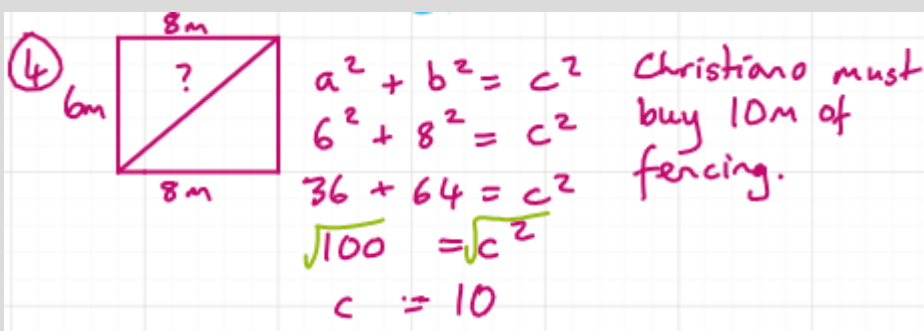 ④
8m
?
6m
8m
a² + b² = c²
6² + 8² = c²
36 + 64 = c²
√100 = √c²
c = 10
Christiano must
buy 10m of
fencing.